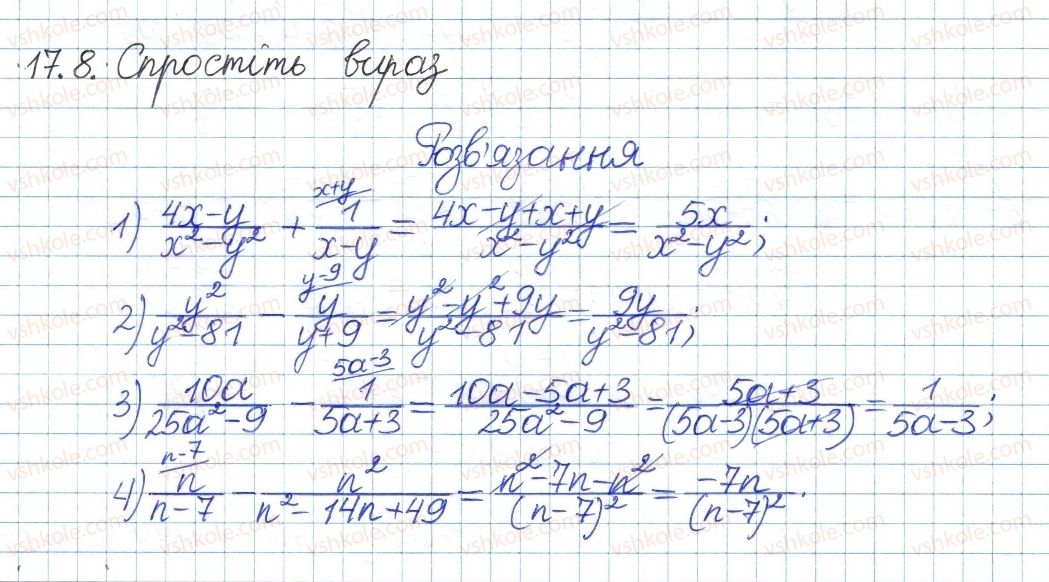 17.8. Спростіть вираз
Розв'язання
1) (4x-y)/(x²-y²) + 1/(x-y) [x+y] = (4x-y+x+y)/(x²-y²) = 5x/(x²-y²);
2) y²/(y²-81) - y/(y+9) [y-9] = (y²-y²+9y)/(y²-81) = 9y/(y²-81);
3) 10a/(25a²-9) - 1/(5a+3) [5a-3] = (10a-5a+3)/(25a²-9) = (5a+3)/((5a-3)(5a+3)) = 1/(5a-3);
4) n/(n-7) [n-7] - n²/(n²-14n+49) = (n²-7n-n²)/(n-7)² = -7n/(n-7)².
vshkole.com